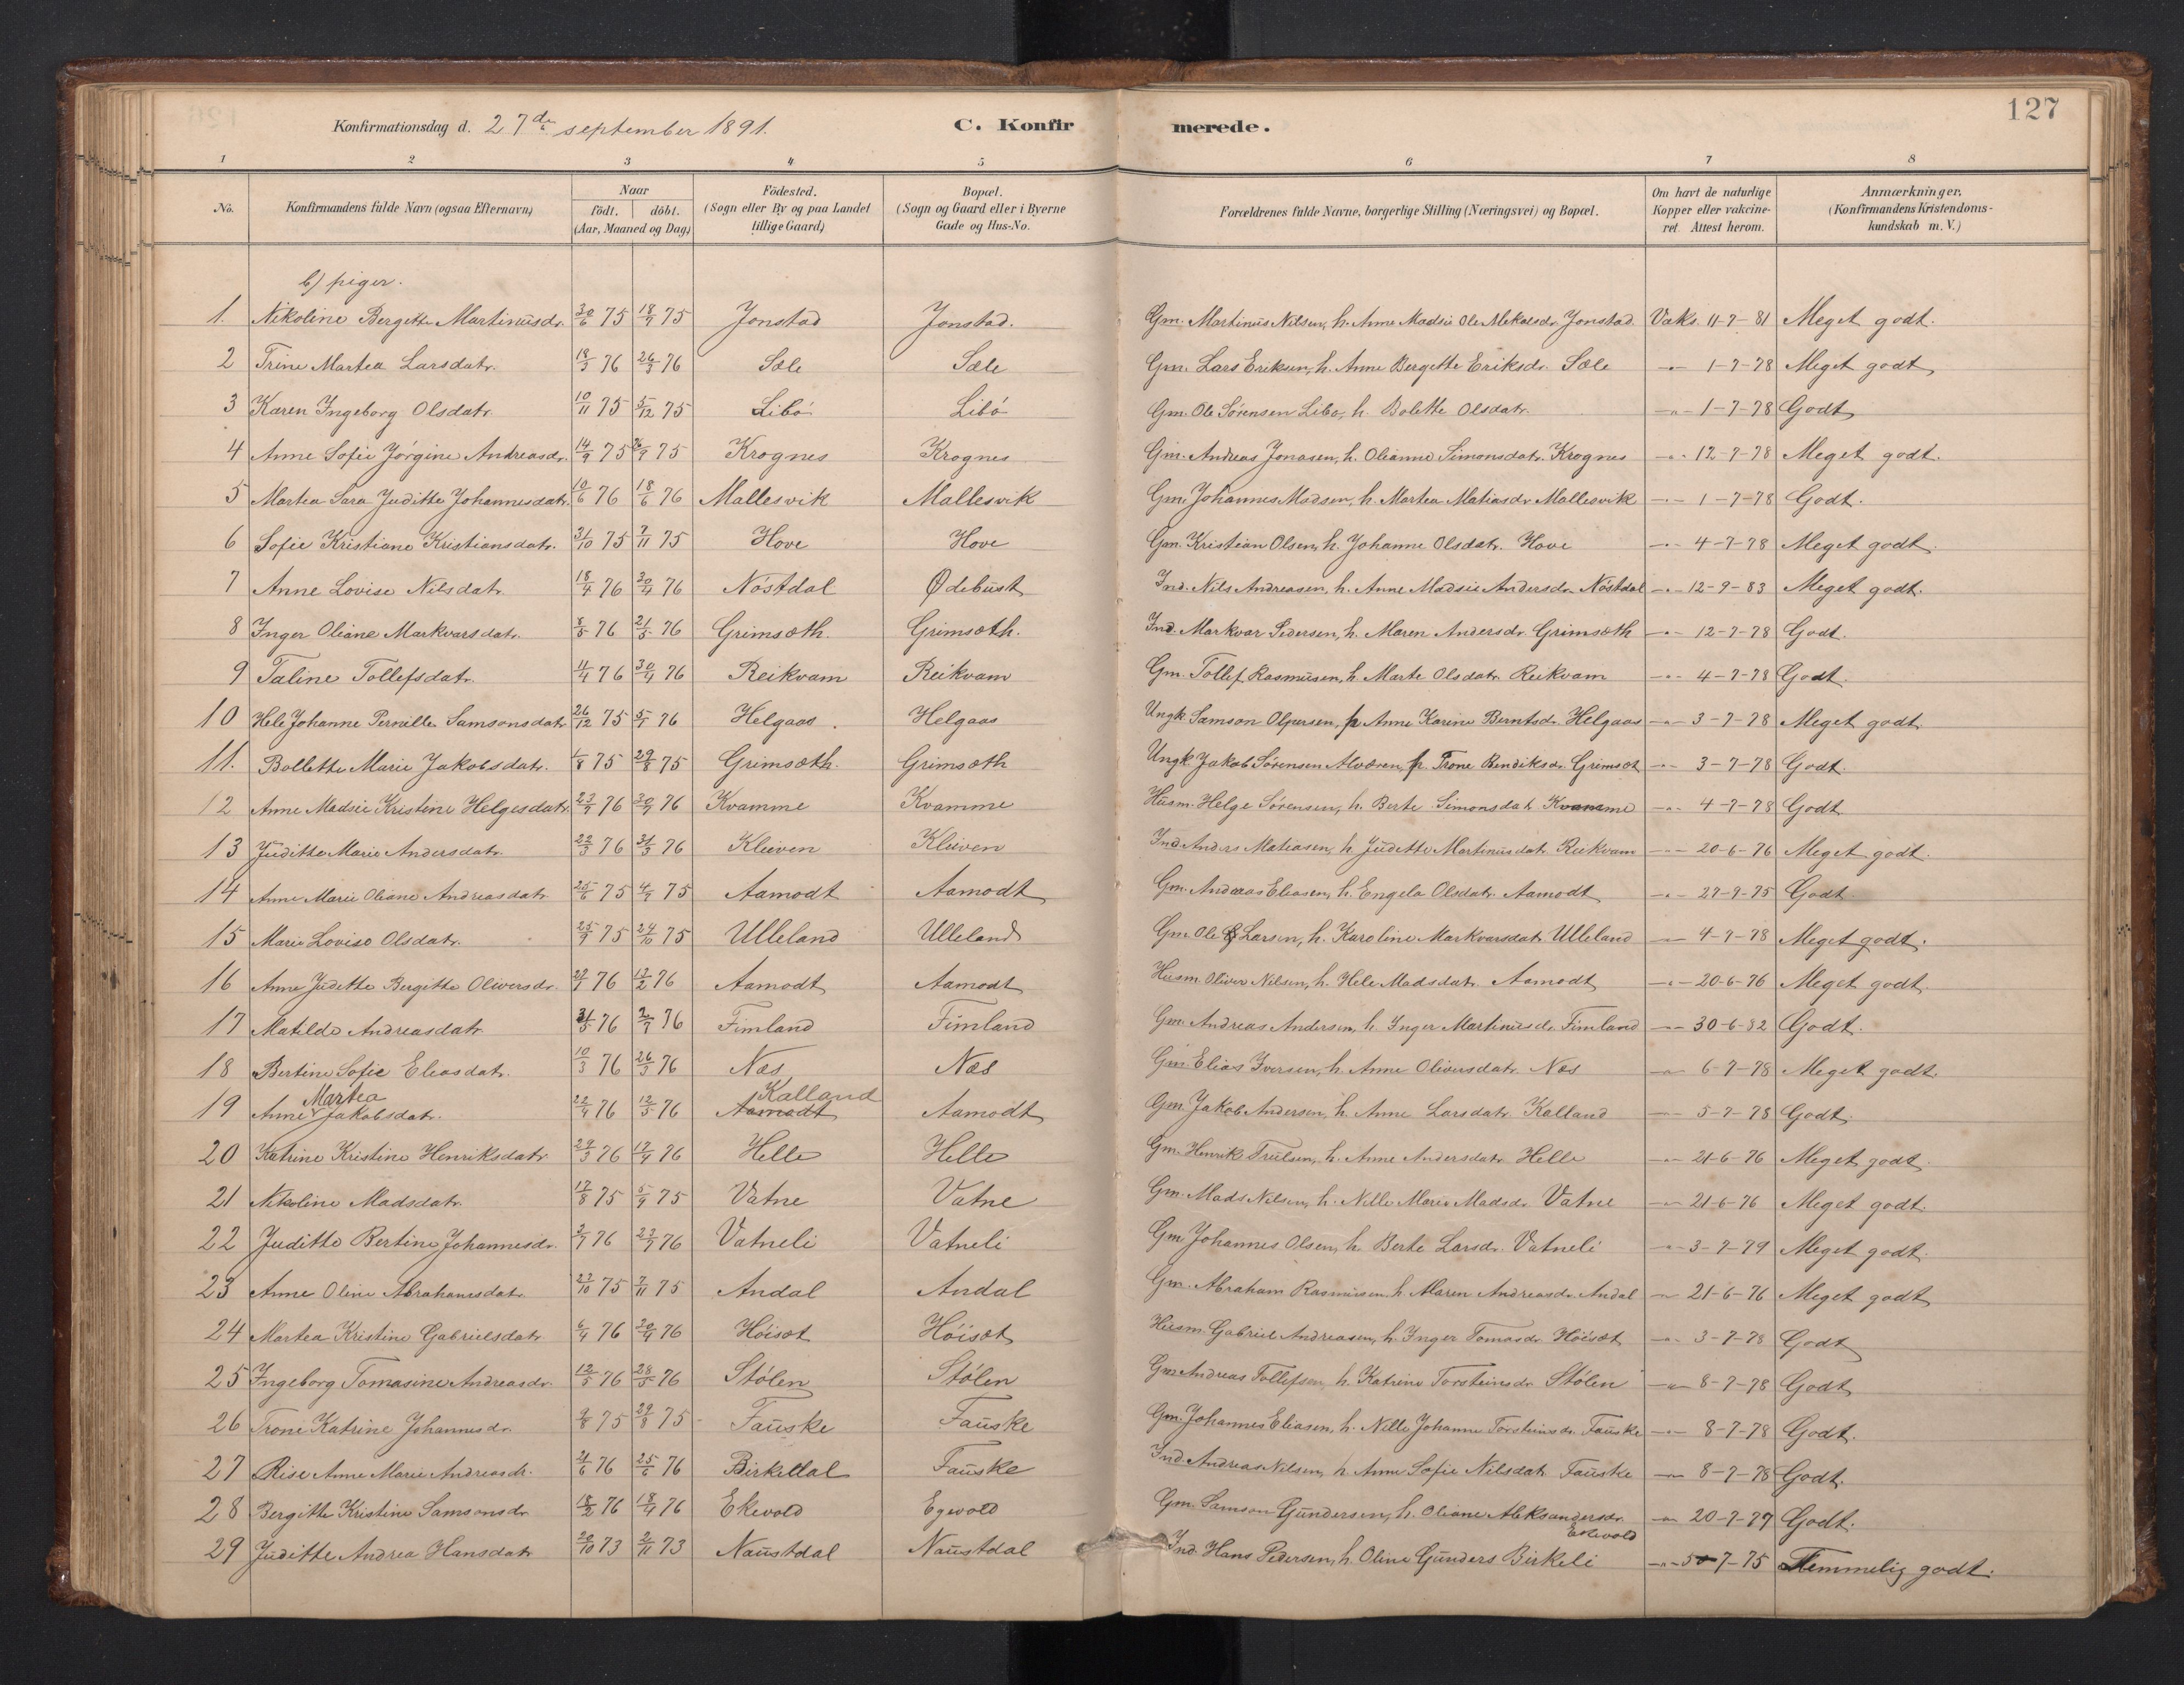 127
Konfirmationsdag d. 27de september 1891. C. Konfirmerede.
1 2 3 4 5 6 7 8
No. Konfirmandens fulde Navn (ogsaa Efternavn) Naar födt. döbt. (Aar, Maaned og Dag) Födested. (Sogn eller By og paa Landet tillige Gaard) Bopæl. (Sogn og Gaard eller i Byerne Gade og Hus-No. Forældrenes fulde Navne, borgerlige Stilling (Næringsvei) og Bopæl. Om havt de naturlige Kopper eller vakcineret. Attest herom. Anmærkninger. (Konfirmandens Kristendomskundskab m. V.)
b) piger.
1. Nikoline Bergitte Martinusdr. 30/6 75 18/7 75 Jonstad Jonstad. Gm. Martinus Nilsen, h. Anne Madsie Ole Mikalsdr. Jonstad Vaks. 11-7-81 Meget godt.
2 Trine Martea Larsdatr. 19/3 76 26/3 76 Sæle Sæle Gm. Lars Eriksen, h. Anne Bergitte Eriksdr. Sæle -"- 1-7-78 Meget godt
3 Karen Ingeborg Olsdatr. 10/11 75 5/12 75 Libö Libö Gm. Ole Sörensen Libo, h. Bolette Olsdatr. -"- 1-7-78 Godt
4 Anne Sofie Jörgine Andreasdr. 14/9 75 26/9 75 Krognes Krognes Gm. Andreas Jonasen, h. Olianne Simonsdatr. Krognes -"- 12-7-78 Meget godt.
5 Martea Sara Juditte Johannesdatr. 10/6 76 18/6 76 Mallesvik Mallesvik Gm. Johannes Madsen, h. Martea Matiasdr Mallesvik -"- 1-7-78 Godt.
6 Sofie Kristiane Kristiansdatr. 31/10 75 7/11 75 Hove Hove Gm. Kristian Olsen, h. Johanne Olsdatr. Hove -"- 4-7-78 Meget godt.
7 Anne Lovise Nilsdatr. 18/4 76 30/4 76 Nöstdal Ødebust Ind. Nils Andreasen, h. Anne Madsie Andersdr. Nöstdal -"- 12-9-83 Meget godt.
8 Inger Oliane Markvarsdatr. 8/5 76 21/5 76 Grimsæth. Grimsæth. Ind. Markvar Pedersen, h. Maren Andersdr. Grimsæth -"- 12-7-78 Godt.
9 Taline Tollefsdatr. 11/4 76 30/4 76 Reikvam Reikvam Gm. Tollef Rasmusen, h. Marte Olsdatr. Reikvam -"- 4-7-78 Godt.
10 Hele Johanne Pernille Samsonsdatr 26/12 75 5/1 76 Helgaas. Helgaas Ungk. Samson Olpersen, p Anne Karine Berntsdr. Helgaas -"- 3-7-78 Meget godt.
11. Bollette Marie Jakobsdatr. 1/8 75 29/8 75 Grimsæth. Grimsæth Ungk Jakob Sörensen Alværen, p. Trone Bendiksdr. Grimsæt -"- 3-7-78 Godt.
12 Anne Madsie Kristine Helgesdatr 23/7 76 30/7 76 Kvamme Kvamme Husm. Helge Sörensen, h. Berte Simonsdatr Kvamme -"- 4-7-78 Godt
13 Juditte Marie Andersdatr. 22/3 76 31/3 76 Kleiven Kleiven Ind Anders Matiasen, h. Juditte Martinusdatr. Reikvam -"- 20-6-76 Meget godt.
14 Anne Marie Oliane Andreasdatr. 25/6 75 4/7 75 Aamodt Aamodt Gm. Andreas Eliasen, h. Engela Olsdatr. Aamodt -"- 27-9-75 Godt
15 Marie Lovise Olsdatr. 25/9 75 24/10 75 Ulleland Ulleland Gm. Ole Larsen, h. Karoline Markvarsdatr. Ulleland -"- 4-7-78 Meget godt.
16 Anne Juditte Bergitte Oliversdr. 27/1 76 13/2 76 Aamodt Aamodt Husm. Oliver Nilsen, h. Hele Madsdatr. Aamodt -"- 20-6-76 Meget godt
17 Matilde Andreasdatr 31/5 76 2/7 76 Fimland Fimland Gm. Andreas Andersen, h. Inger Martinusdr. Fimland -"- 30-6-82 Godt.
18 Bertine Sofie Eliasdatr. 10/3 76 26/3 76 Næs Næs Gm Elias Iversen, h. Anne Oliversdatr. Næs -"- 6-7-78 Meget godt.
19 Anne Martea Jakobsdatr. 22/4 76 12/5 76 Aamodt Kalland Aamodt Gm. Jakob Andersen, h. Anne Larsdatr. Kalland -"- 5-7-78 Godt.
20 Katrine Kristine Henriksdatr 29/3 76 17/4 76 Helle Helle Gm. Henrik Trulsen, h. Anne Andersdatr. Helle -"- 21-6-76 Meget godt.
21 Nikoline Madsdatr. 17/8 75 5/9 75 Vatne Vatne Gm. Mads Nilsen, h. Nille Marie Madsdr Vatne -"- 21-6-76 Meget godt.
22 Juditte Bertine Johannesdr. 2/7 76 23/7 76 Vatneli Vatneli Gm. Johannes Olsen, h. Berte Larsdr. Vatneli -"- 3-7-79 Meget godt.
23 Anne Oline Abrahamsdatr 23/10 75 7/11 75 Andal Andal Gm. Abraham Rasmusen h. Maren Andreasdr. Andal -"- 21-6-76 Meget godt
24 Martea Kristine Gabrielsdatr 6/4 76 30/4 76 Höisæt Höisæt Husm. Gabriel Andreasen, h. Inger Tomasdr. Höisæt -"- 3-7-78 Godt
25 Ingeborg Tomasine Andreasdr. 12/5 76 28/5 76 Stölen Stölen Gm Andreas Tollefsen, h. Katrine Torsteinsdr Stölen -"- 8-7-78 Godt
26 Trone Katrine Johannesdr. 9/8 75 29/8 75 Fauske Fauske Gm. Johannes Eliasen, h. Nille Johanne Torsteinsdr. Fauske -"- 8-7-78 Godt.
27 Rise Anne Marie Andreasdr. 4/6 76 25/6 76 Birkeldal Fauske Ind Andreas Nilsen, h. Anne Sofie Nilsdatr. Fauske -"- 8-7-78 Godt.
28 Bergitte Kristine Samsonsdr 18/2 76 18/4 76 Ekevold Egevold Gm. Samson Gundersen, h. Oliane Aleksandersdr. Eekevold -"- 20-7-77 Godt.
29 Juditte Andrea Hansdatr 20/10 73 2/11 73 Naustdal Naustdal Ind. Hans Pedersen, h. Oline Gunders Birkeli -"- 5-7-75 Temmelig godt.